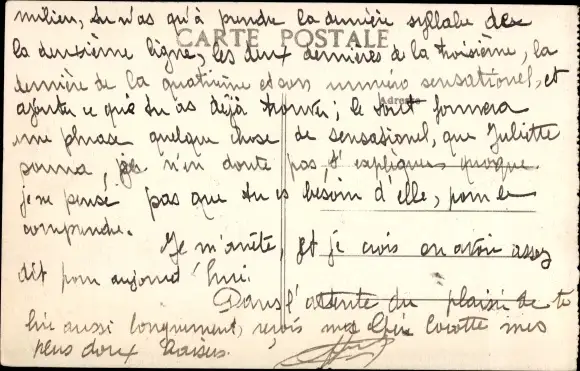 milieu, tu n'as qu'à prendre la dernière syllabe de
CARTE POSTALE
la deuxième ligne, les deux dernières de la troisième, la
dernière de la quatrième et un numéro sensationel, et
ajouter ce que tu as déjà trouvé ; le tout formera
Adresse
une phrase quelque chose de sensasionel, que Juliette
pourra, je n'en doute pas, t'expliquer, quoique
je ne pense pas que tu es besoin d'elle, pour le
comprendre.
Je m'arrête, et je crois en avoir assez
dit pour aujourd'hui.
Dans l'attente du plaisir de te
lire aussi longuement, reçois ma chère cocotte mes
plus doux baisers.